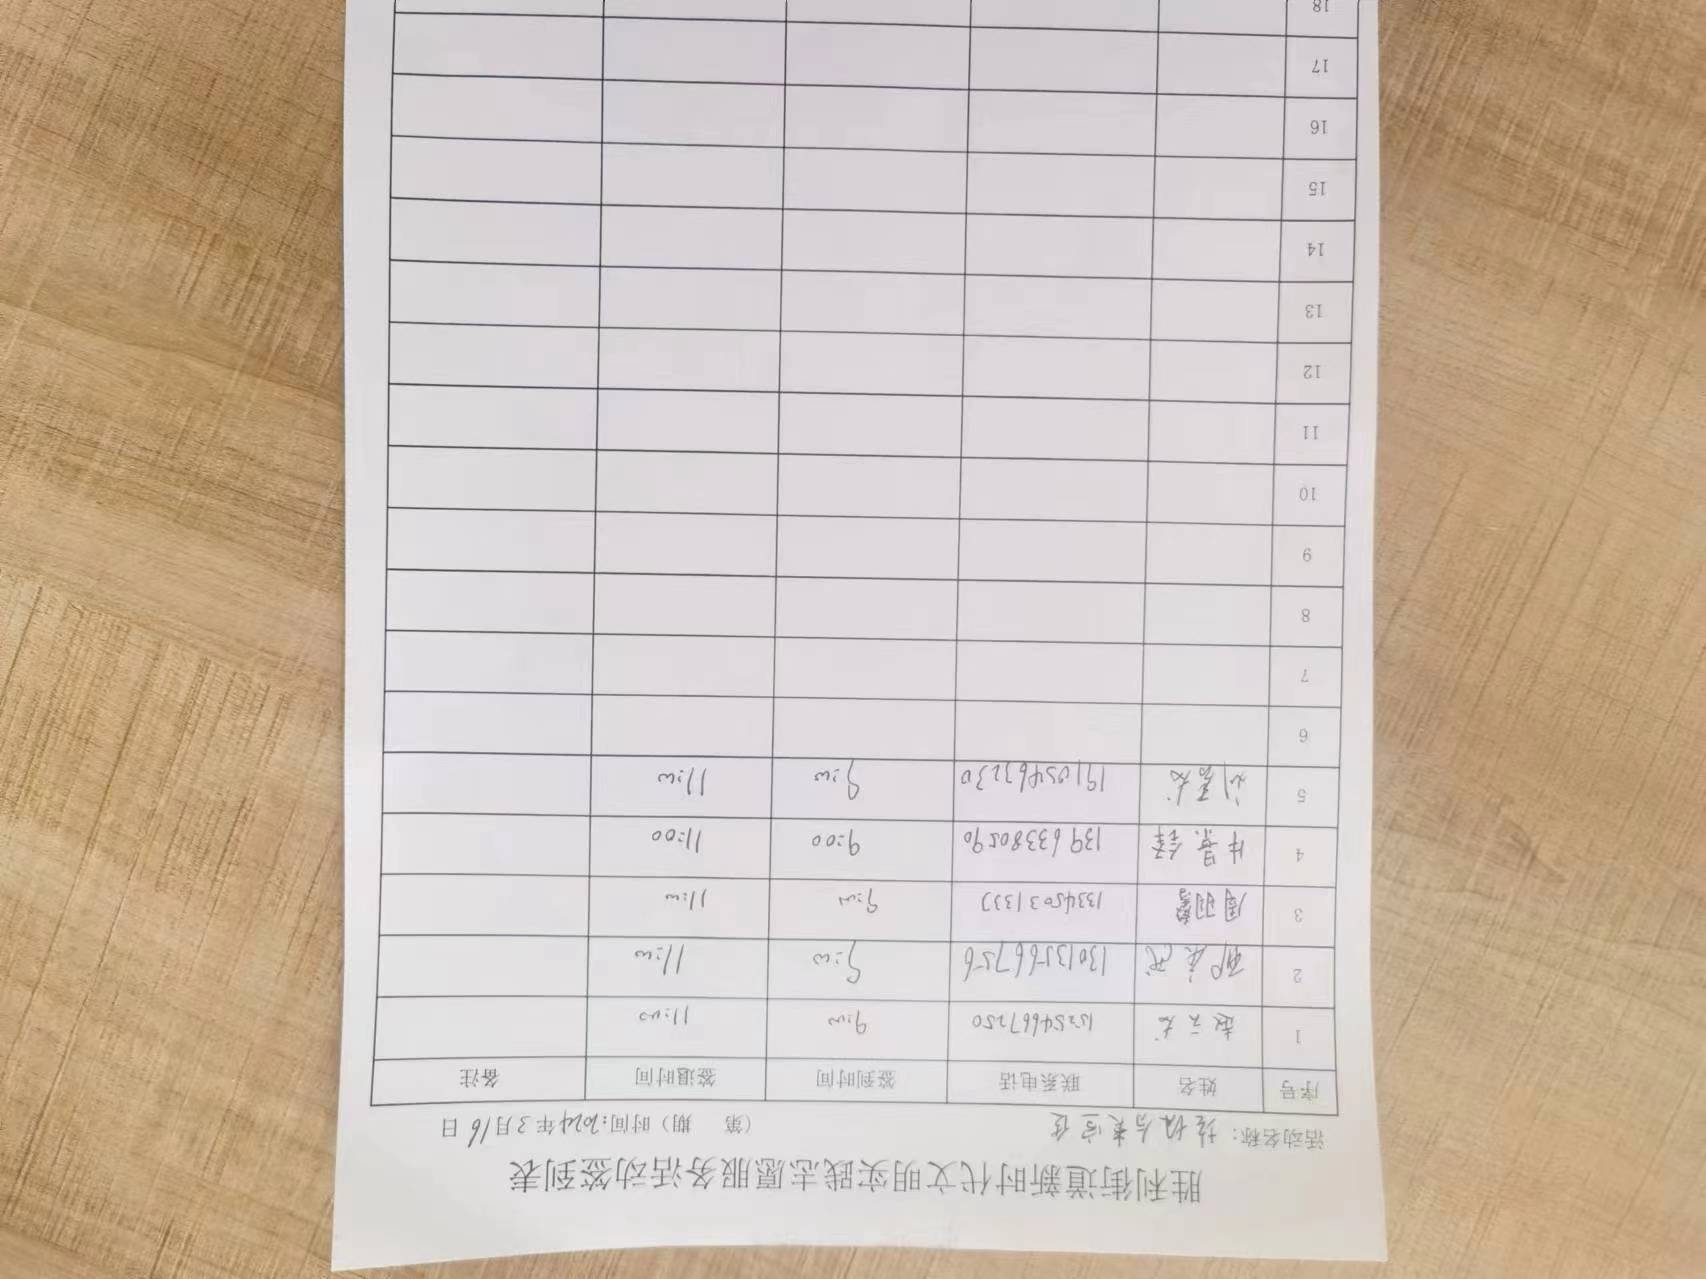 胜利街道新时代文明实践志愿服务活动签到表
活动名称： （第 期）时间：2024年3月16日
序号 姓名 联系电话 签到时间 签退时间 备注
1 赵云龙 15254667250 9:00 11:00
2 13013566756 9:00 11:00
3 周明 9:00 11:00
4 许景铎 13963380590 9:00 11:00
5 19105463230 9:00 11:00
6
7
8
9
10
11
12
13
14
15
16
17
18